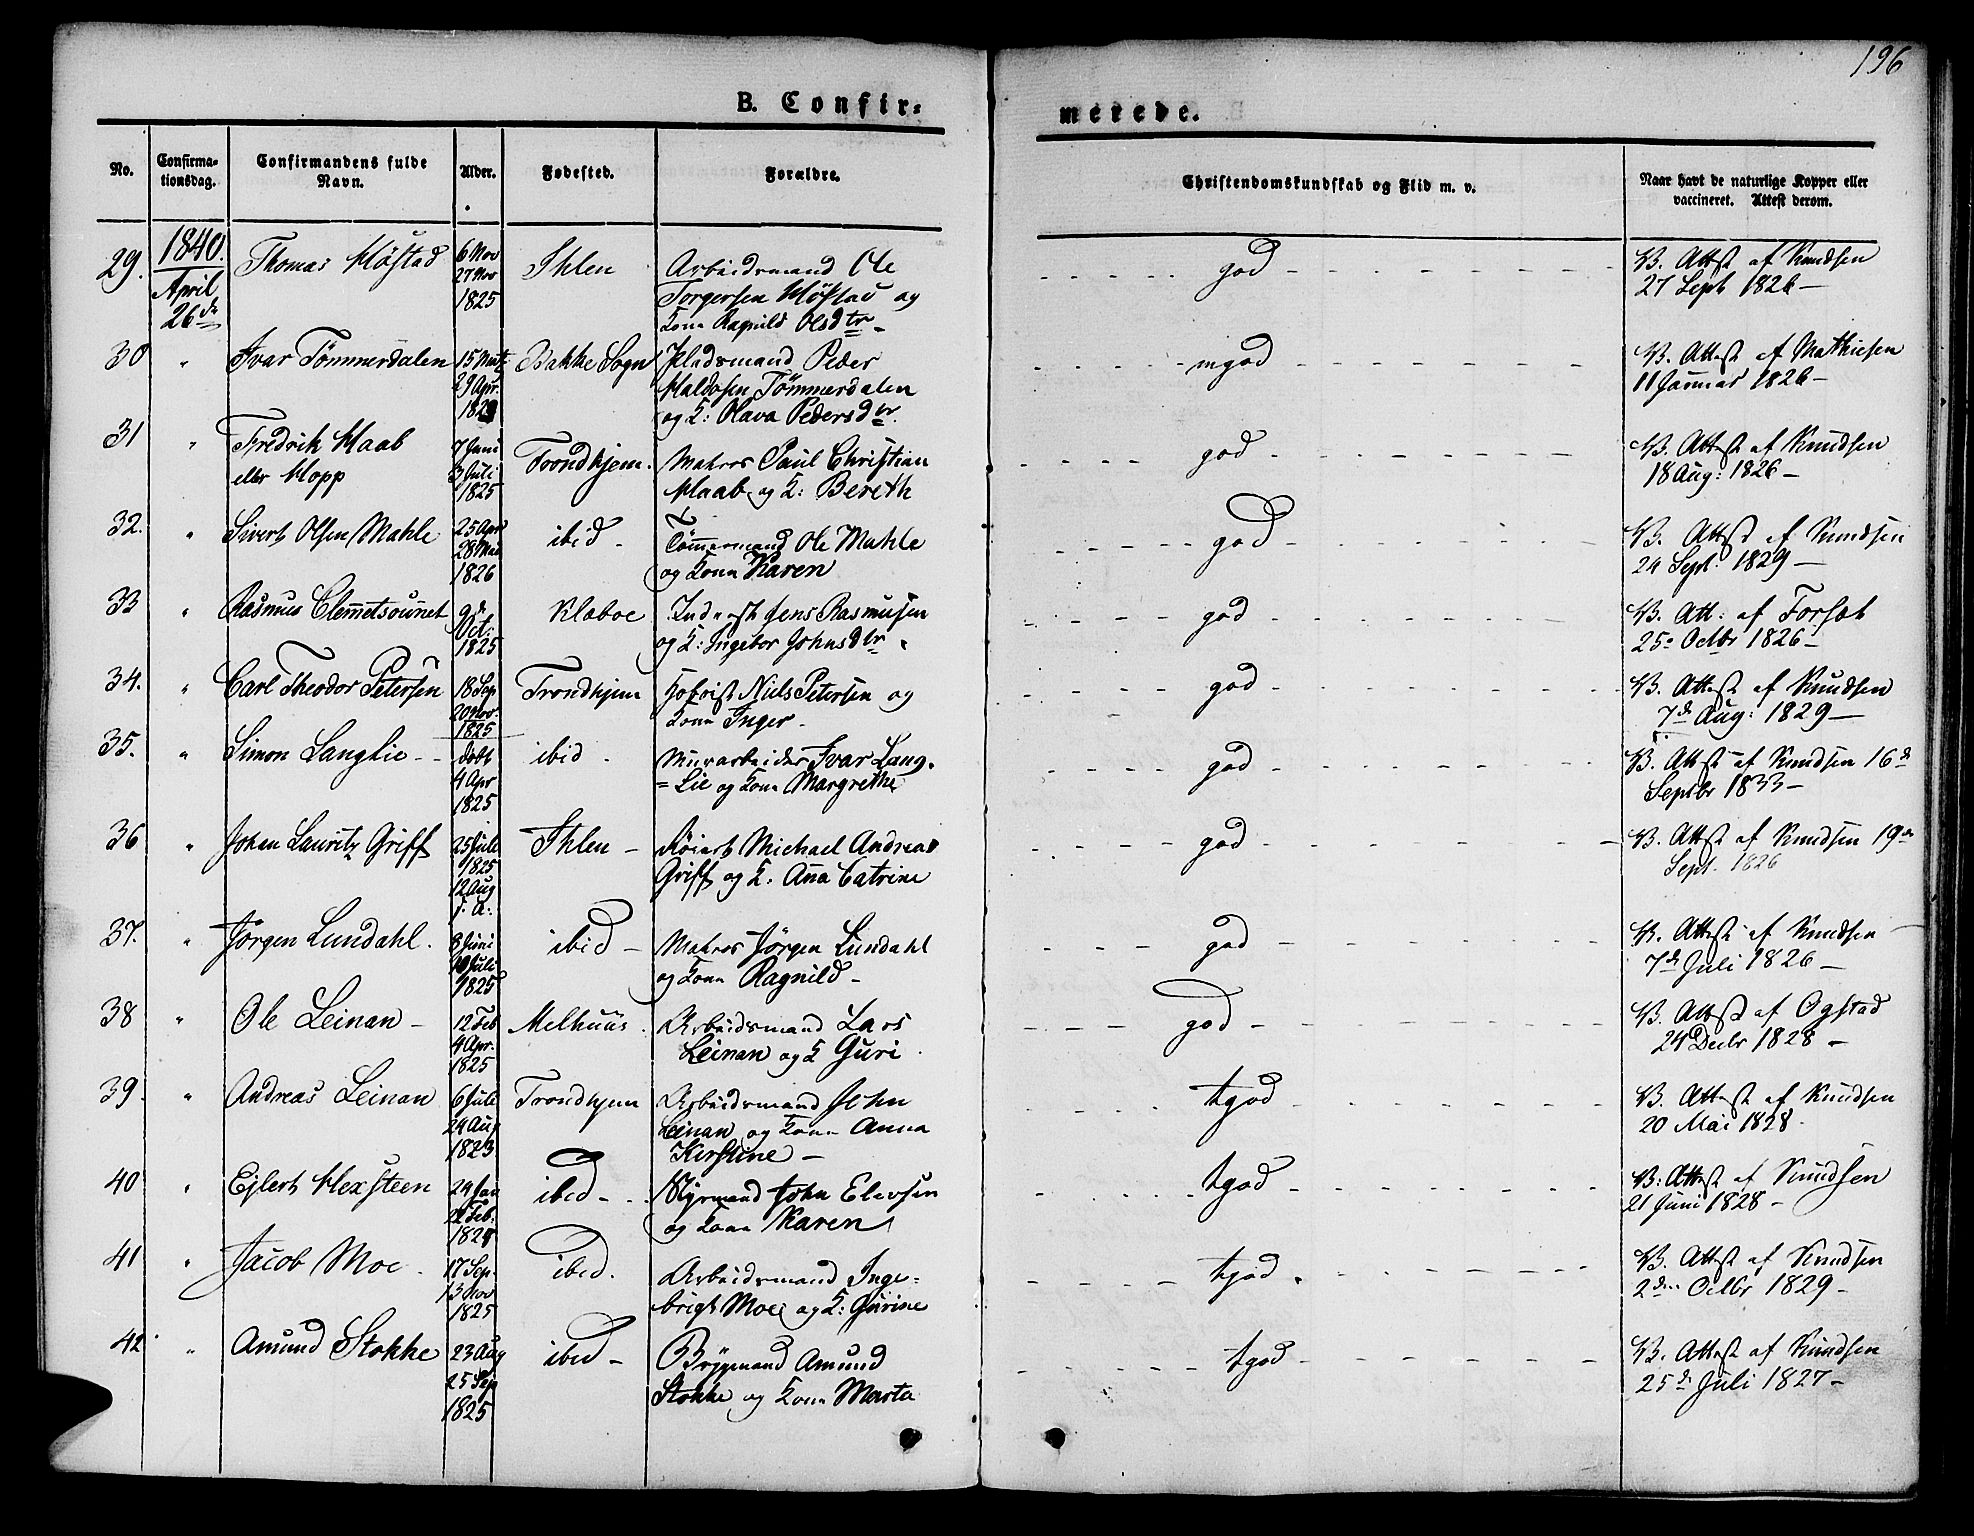 196
B. Confir=
merede.
No.
Confirma-
tionsdag.
Confirmandens fulde
Navn.
Alder.
Fødested.
Forældre.
Christendomskundskab og Flid m. v.
Naar havt de naturlige Kopper eller
vaccineret. Attest derom.
29. 1840. April 26de Thomas Høstad 6 Nov 27 Nov 1825 Ihlen Arbeidsmand Ole
Torgersen Høstad og
Kone Ragnild Olsdtr
god
V. Attest af Knudsen
27 Sept 1826
30 " Ivar Tømmerdalen 15 29 Apr. Bakke Sogn Pladsmand Peder
Haldosen Tømmerdalen
og K: Olava Pedersdtr.
mgod
V. Attest af Mathiesen
11 Januar 1826
31 " Fredrik Haab
eller Hopp
7 Juni 3 Juli 1825 Trondhjem. Matros Paul Christian
Haab og K: Bereth
god
V. Attest af Knudsen
18 Aug: 1826
32. " Sivert Olsen Mahle 25 Apr 28 Mai 1826 ibid Tømmermand Ole Mahle
og Kone Karen
god
V. Attest af Knudsen
24 Sept. 1829
33 " Rasmus Clemetsaunet 9de Oct. 1825 Klæboe Inderst Jens Rasmusen
og K: Ingebor Johnsdtr
god
V. Att: af Forsæt
25 Octbr 1826
34. " Carl Theodor Petersen 18 Sep 20 Nov. 1825 Trondhjem Niels Petersen og
Kone Inger
god
V. Attest af Knudsen
7de Aug: 1829
35. " Simon Langlie døbt 4 Apr 1825 ibid Murarbeider Ivar Lang=
=Lie og Kone Margrethe
god
V. Attest af Knudsen 16de
Septbr 1833
36 " Johan Lauritz Griff 25 Juli 1825 12 Aug s. A. Ihlen Michael Andreas
Griff og K: Ana Catrine
god
V. Attest af Knudsen 19de
Sept. 1826
37. " Jørgen Lundahl. 8 Juni 10 Juli 1825 ibid Matros Jørgen Lundahl
og Kone Ragnild
god
V. Attest af Knudsen
7de Juli 1826
38 " Ole Leinan 12 Feb 4 Apr. 1825 Melhuus Arbeidsmand Lars
Leinan og K Guri
god
V. Attest af Ogstad
24 Decbr 1828
39. " Andreas Leinan 6 Juli 24 Aug 1823 Trondhjem Arbeidsmand John
Leinan og Kone Anna
Kirstine
tgod
V. Attest af Knudsen
20 Mai 1828
40 " Ejlert Hexsteen 24 Jan Feb. ibid Styrmand John Elevsen
og Kone Karen
tgod
V. Attest af Knudsen
21 Juni 1828
41 " Jacob Moe 17 Sep. 13 Nov 1825 ibid. Arbeidsmand Inge=
brigt Moe og K: Gurine
tgod
V. Attest af Knudsen
2den Octbr 1829
42 " Amund Stokke 23 Aug 25 Sep 1825 ibid Brygmand Amund
Stokke og Kone Marta
tgod
V. Attest af Knudsen
25de Juli 1827